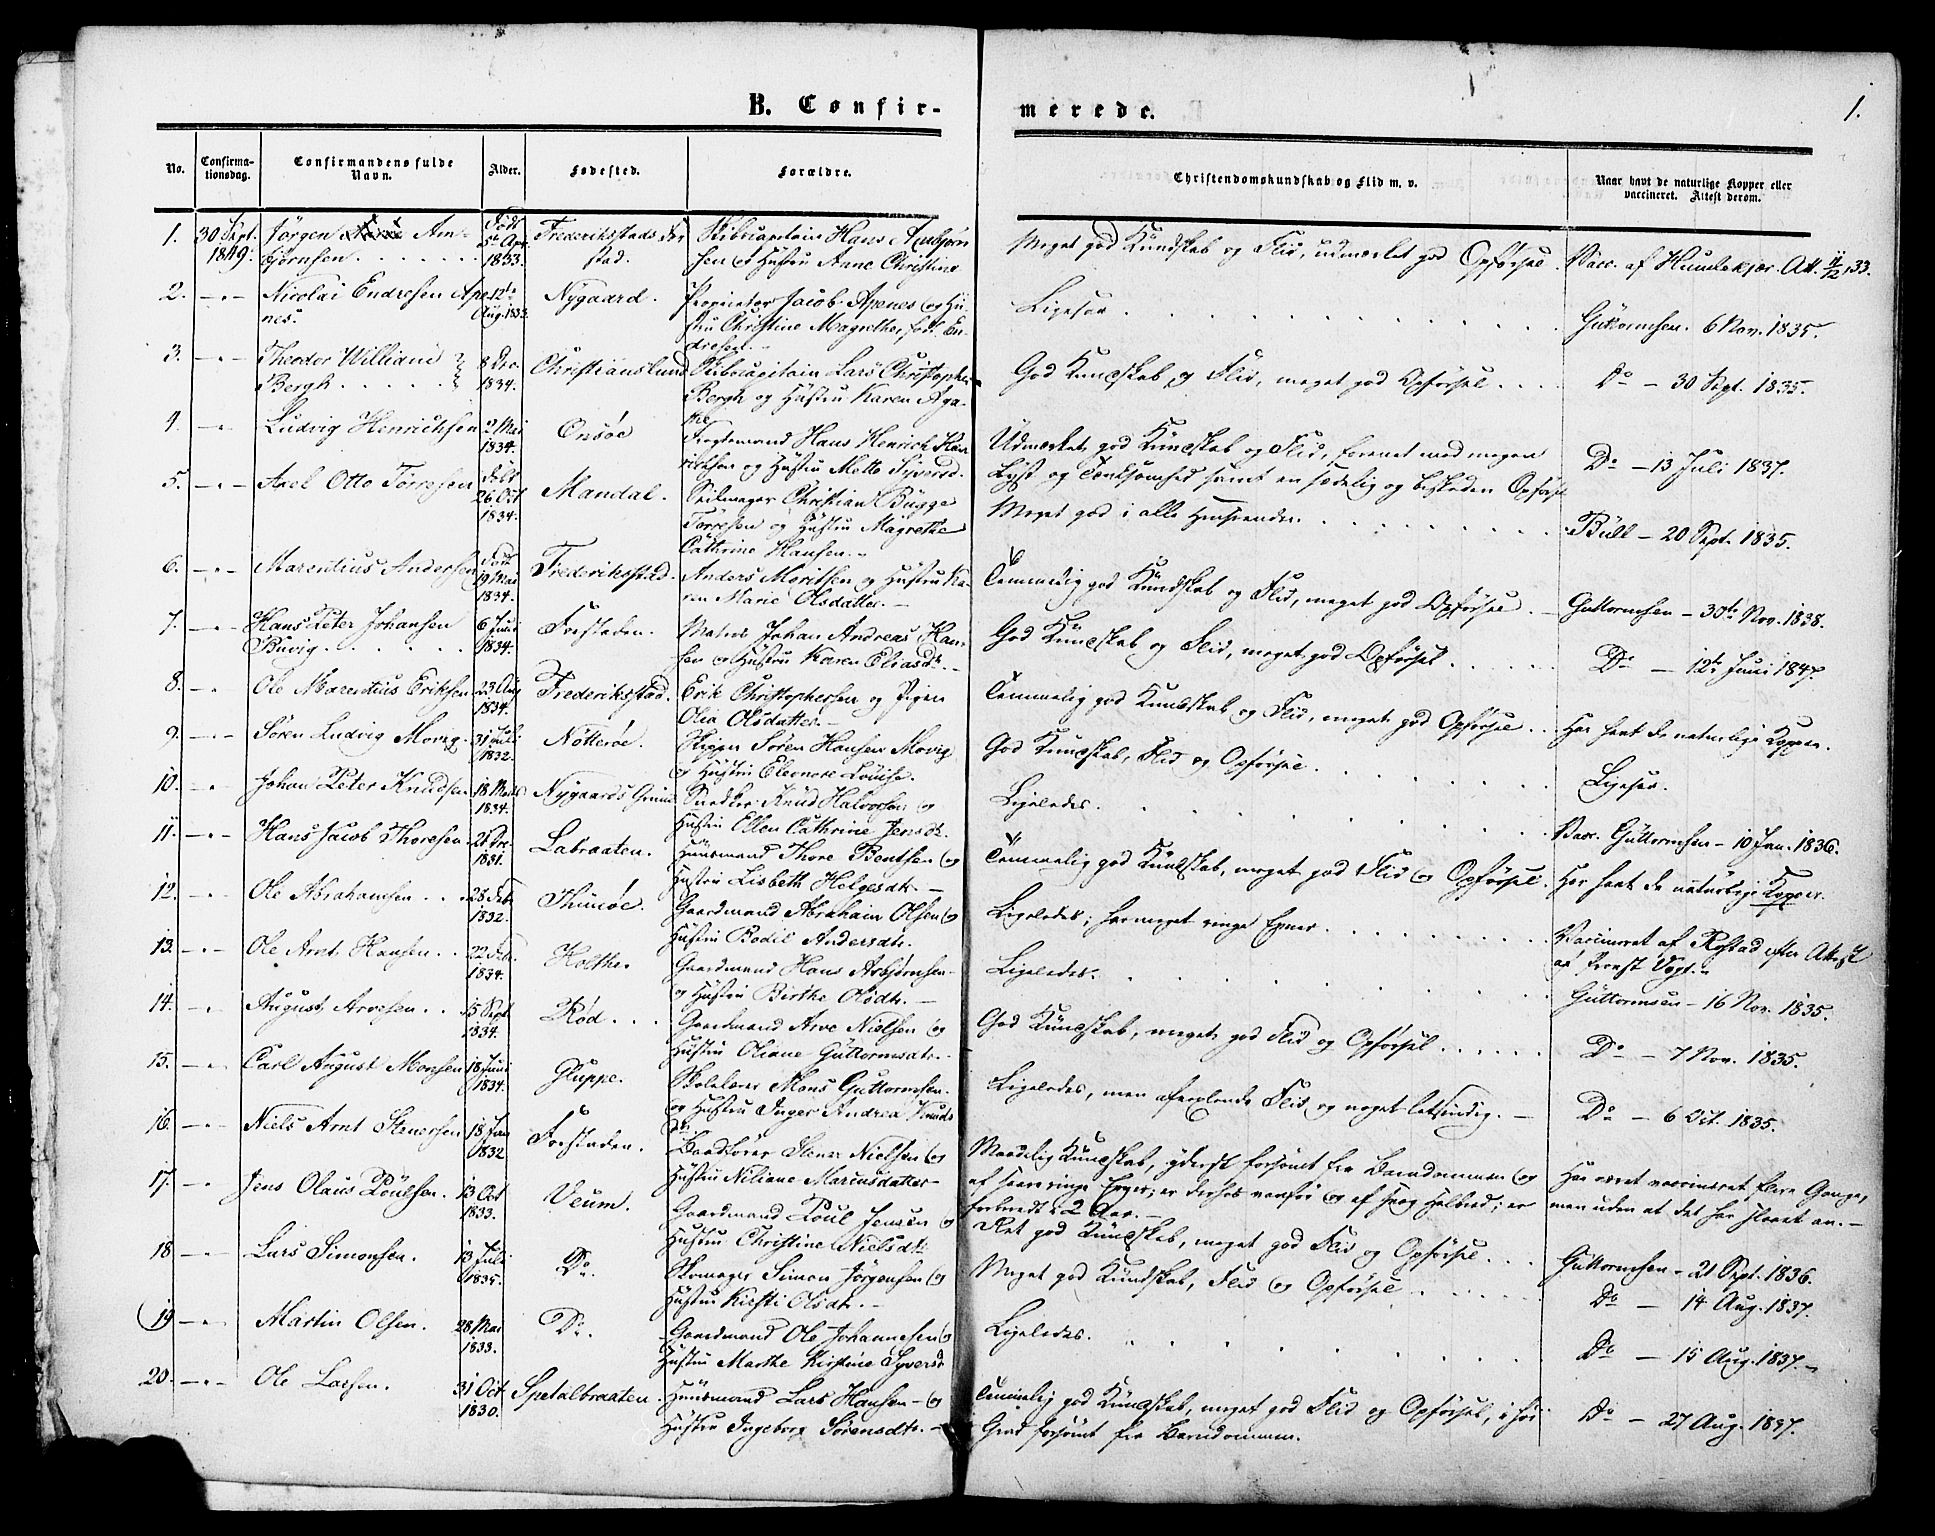 B. Confirmerede.
1.
No. Confirmationsdag. Confirmandens fulde Navn. Alder. Fødested. Forældre. Christendomskundskab og Flid m. v. Naar havt de naturlige Kopper eller vaccineret. Attest derom.
1. 30 Sept. 1849. Jörgen Am-
björnsen
Født 5te Apr. 1833
Frederiksstads Forstad.
Skibscapitain Hans Ambjörn
sen og Hustru Anne Christine
Meget god Kundskab og Flid, udmærket god Opførsel.
Vacc. af Humlekjær. Att. 11/12 33.
2. -"- Nicolai Endresen Ape
nes.
12te Aug. 1833
Nygaard.
Proprietær Jacob Apenes og Hu
stru Christine Magrethe, fød. En
dresen.
Ligesaa
Guttormsen. 6 Nov. 1835.
3. -"- Theodor William
Bergh
8 Dec. 1834.
Christianslund
Skibscapitain Lars Christopher
Bergh og Hustru Karen Aga
the
God Kundskab og Flid, meget god Opførsel
Do - 30 Sept. 1835.
4. -"- Ludvig Henrichsen
2 Mai 1834.
Onsöe
Hans Henrich Hen
richsen og Hustru Mette Syversd.
Udmærket god Kundskab og Flid, forenet med megen
Lyst og Tænksomhed samt en sædelig og beskeden Opførsel
Do - 13 Juli 1837.
5. -"- Axel Otto Törresen
Født 26 Oct 1834.
Mandal.
Seilmager Christian Bugge
Törresen og Hustru Magrethe
Cathrine Hansen.
Meget god i alle Henseender.
Bull - 20 Sept. 1835.
6. -"- Marentius Andersen
Født 19 Mai 1834.
Frederiksstad.
Anders Moritsen og Hustru Ka
ren Marie Olsdatter.
Temmelig god Kundskab og Flid, meget god Opførsel.
Guttormsen - 30te Nov. 1838.
7. -"- Hans Peter Johansen
Buvig
6 Juni 1834.
Forstaden.
Matros Johan Andreas Han
sen og Hustru Karen Eliasdt.
God Kundskab og Flid, meget god Opførsel
Do - 12te Juni 1847.
8. -"- Ole Marentius Eriksen
23 Aug 1834.
Frederiksstad.
Erik Christophersen og Pigen
Olia Olsdatter.
Temmelig god Kundskab og Flid, meget god Opførsel
Har havt de naturlige Kopper.
9. -"- Sören Ludvig Movig.
31 Juli 1832.
Nötteröe.
Skipper Sören Hansen Movig
og Hustru Eleonore Louise.
God Kundskab, Flid og Opførsel
Ligesaa.
10. -"- Johan Peter Knudsen
18 Marts 1834.
Nygaards Grund
Snedker Knud Halvorsen og
Hustru Ellen Cathrine Jensdt.
Ligeledes.
Vacc. Guttormsen - 10 Jan. 1836.
11. -"- Hans Jacob Thoresen
1831.
Labraaten.
Huusmand Thore Bentsen og
Hustru Lisbeth Helgesdt.
Temmelig god Kundskab, meget god Flid og Opførsel.
Har havt de naturlige Kopper.
12. -"- Ole Abrahamsen
28 Feb. 1832.
Thuröe.
Gaardmand Abraham Olsen og
Hustru Bodil Andersdt.
Ligeledes; har meget ringe Evner
Vaccineret af Rostad efter Attest
af Provst Vogt.
13. -"- Ole Arnt Hansen
22 Feb. 1834.
Holthe.
Gaardmand Hans Asbjörnsen
og Hustru Birthe Olsdt.
Ligeledes.
Guttormsen - 16 Nov. 1835.
14. -"- August Arvesen
15 Sept. 1834.
Röd.
Gaardmand Arve Nielsen og
Hustru Oliane Guttormsdt.
God Kundskab, meget god Flid og Opførsel
Do - 7 Nov. 1835.
15. -"- Carl August Monsen
18 Juni 1834.
Gluppe.
Skolelærer Mons Guttormsen
og Hustru Inger Andrea Knuds
dt.
Ligeledes, men afvexlende Flid og noget letsindig.
Do - 6 Oct. 1835.
16. -"- Niels Arnt Stenersen
18 Jan 1832
Forstaden.
Baadfører Stener Nielsen og
Hustru Niliane Mariusdatter
Maadelig Kundskab, yderst forsømt fra Barndommen og
af saare ringe Evner; er derhos vanfør og af svag Helbred; er
forberedt i 2 Aar.
Har været vaccineret flere Gange,
men uden at det har slaaet an.
17. -"- Jens Olaus Poulsen.
13 Oct 1833.
Veum.
Gaardmand Poul Jensen og
Hustru Christine Nielsdt.
Ret god Kundskab, meget god Flid og Opførsel
Guttormsen - 21 Sept. 1836.
18 -"- Lars Simonsen.
13 Juli 1835.
Do.
Skomager Simon Jörgensen og
Hustru Kirsti Olsdt.
Meget god Kundskab, Flid og Opførsel
Do - 14 Aug. 1837.
19 -"- Martin Olsen.
28 Mai 1833.
Do.
Gaardmand Ole Johannesen og
Hustru Marthe Kirstine Syversd
Ligeledes.
Do - 15 Aug. 1837.
20. -"- Ole Larsen.
31 Oct 1830.
Spetalbraaten.
Huusmand Lars Hansen og
Hustru Ingeborg Sörensdt.
Temmelig god Kundskab, meget god Flid og Opførsel, i høi
Grad forsømt fra Barndommen.
Do - 27 Aug. 1837.